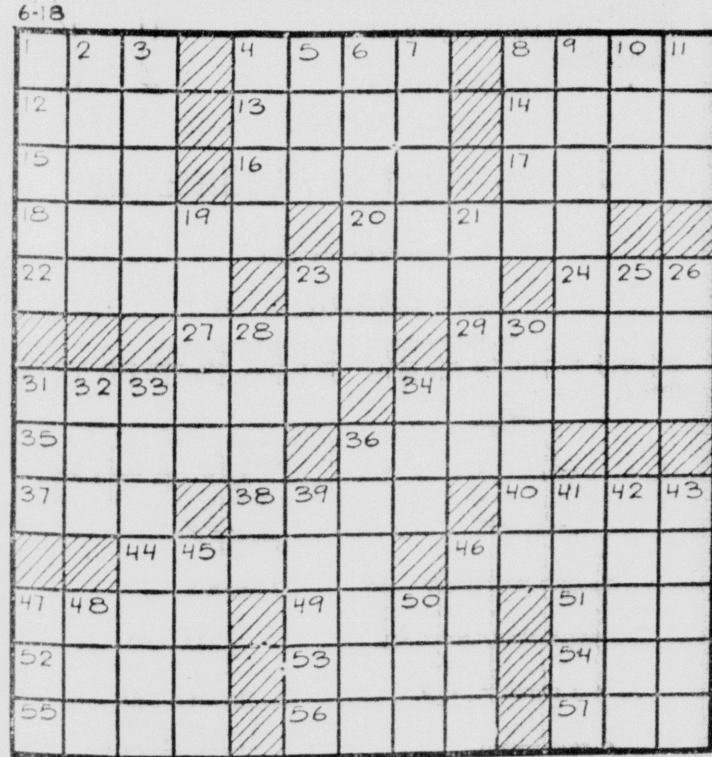 6-18
1 2 3 4 5 6 7 8 9 10 11
12 13 14
15 16 17
18 19 20 21
22 23 24 25 26
27 28 29 30
31 32 33 34
35 36
37 38 39 40 41 42 43
44 45 46
47 48 49 50 51
52 53 54
55 56 57